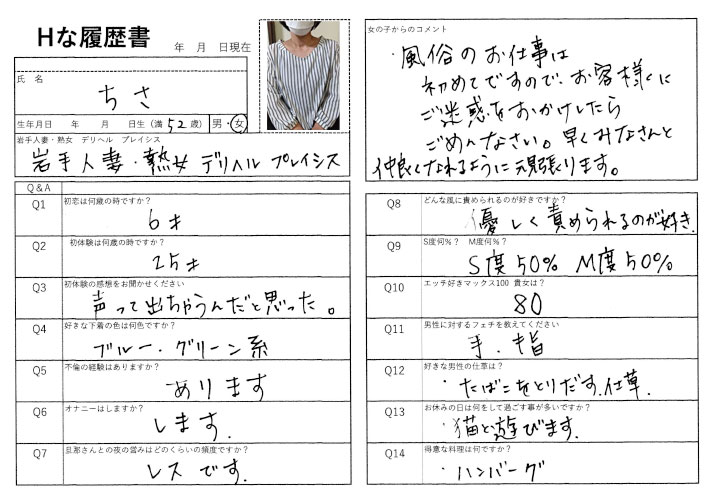 Hな履歴書
年 月 日現在
氏 名
ちさ
生年月日 年 月 日生(満 52 歳) 男・女
岩手人妻・熟女 デリヘル プレイシス
岩手人妻・熟女 デリヘル プレイシス
Q&A
Q1 初恋は何歳の時ですか?
6才
Q2 初体験は何歳の時ですか?
25才
Q3 初体験の感想をお聞かせください
声って出ちゃうんだと思った。
Q4 好きな下着の色は何色ですか?
ブルー・グリーン系
Q5 不倫の経験はありますか?
あります
Q6 オナニーはしますか?
します.
Q7 旦那さんとの夜の営みはどのくらいの頻度ですか?
レスです.
女の子からのコメント
・風俗のお仕事は
初めてですので、お客様に
ご迷惑をおかけしたら
ごめんなさい。早くみなさんと
仲良くなれるように頑張ります。
Q8 どんな風に責められるのが好きですか?
優しく責められるのが好き.
Q9 S度何%? M度何%?
S度50% M度50%
Q10 エッチ好きマックス100 貴女は?
80
Q11 男性に対するフェチを教えてください
手・指
Q12 好きな男性の仕草は?
・たばこをとりだす.仕草.
Q13 お休みの日は何をして過ごす事が多いですか?
・猫と遊びます.
Q14 得意な料理は何ですか?
・ハンバーグ